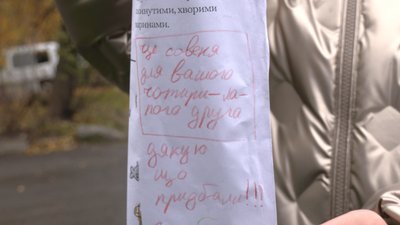 кинутими, хворими
аринами.
це совеня
для вашого
чотири-ла-
пого друга
дякую
що
придбали!!!